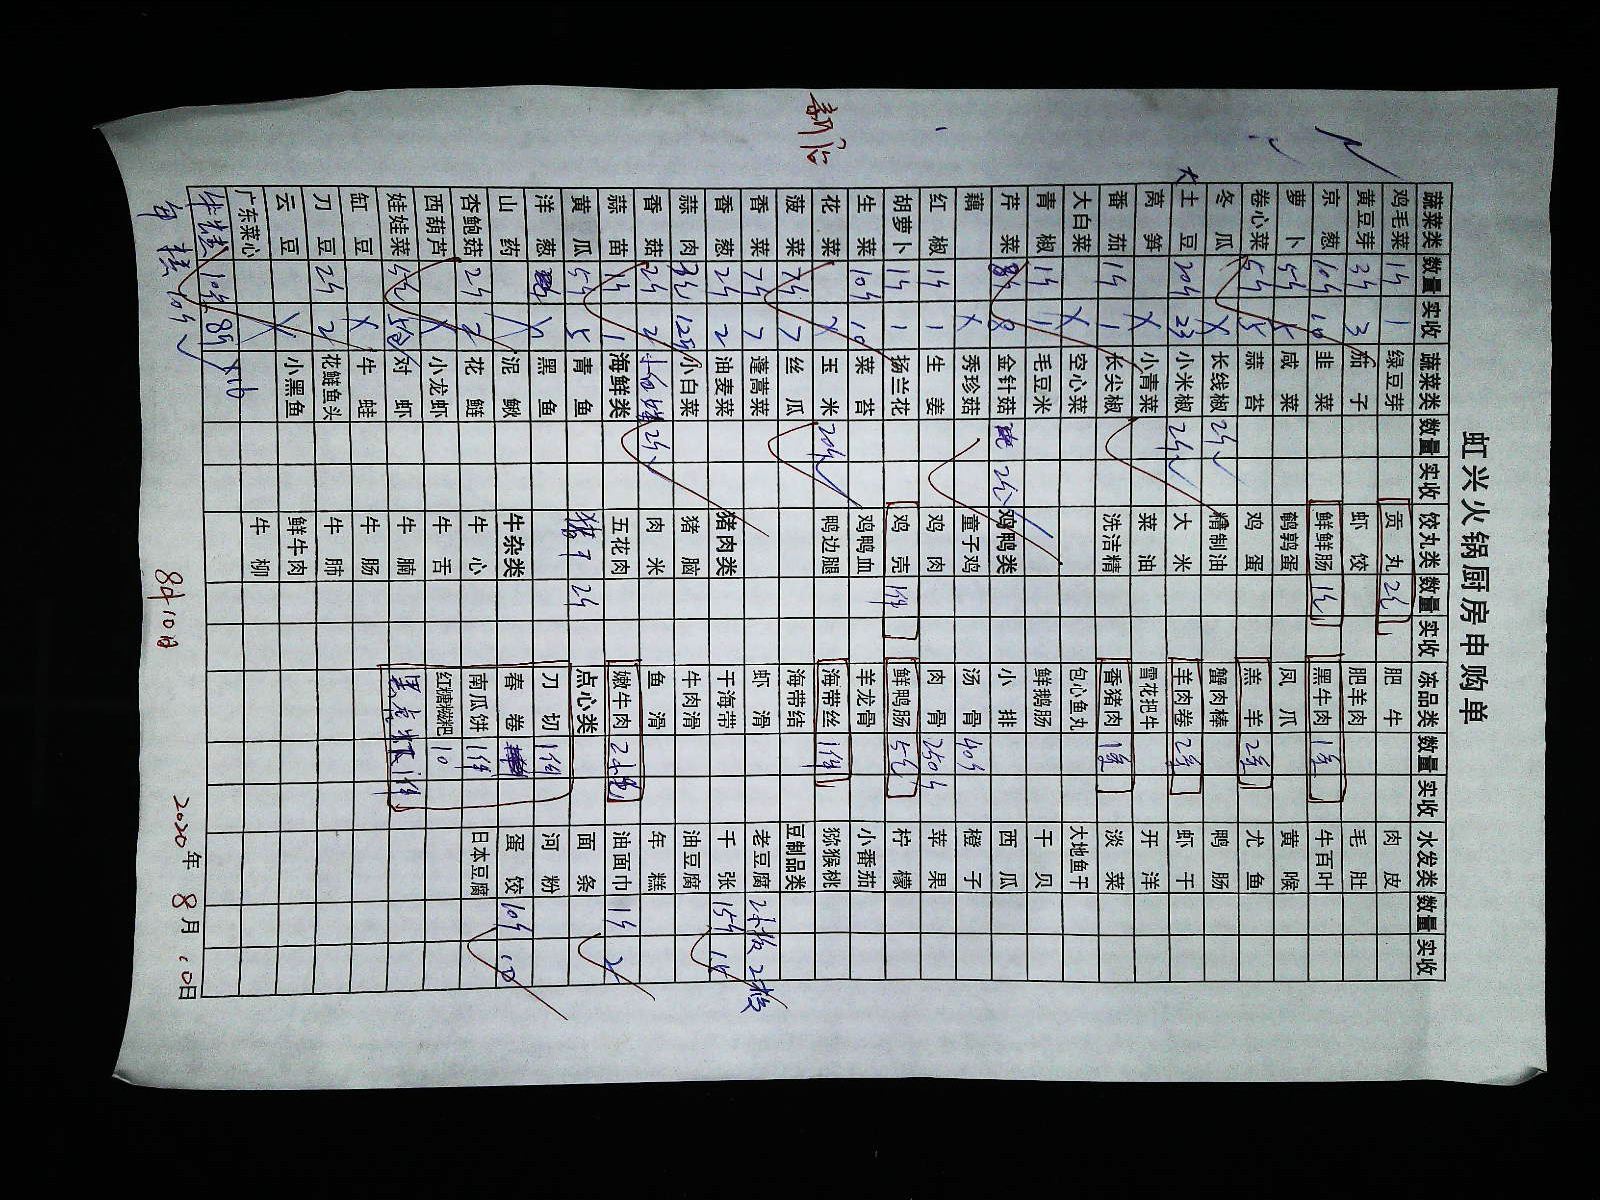 新店
虹兴火锅厨房申购单
蔬菜类 数量 实收 蔬菜类 数量 实收 饺丸类 数量 实收 冻品类 数量 实收 水发类 数量 实收
鸡毛菜 1斤 1 绿豆芽 贡丸 2包 肥牛 肉皮
黄豆芽 3斤 3 茄子 虾饺 肥羊肉 毛肚
京葱 10斤 10 韭菜 鲜鲜肠 1包 黑牛肉 1箱 牛百叶
萝卜 5斤 5 咸菜 鹌鹑蛋 凤爪 黄喉
卷心菜 5斤 5 蒜苔 鸡蛋 羔羊 2箱 尤鱼
冬瓜 X 长线椒 2斤 精制油 蟹肉棒 鸭肠
大土豆 20斤 23 小米椒 2斤 大米 羊肉卷 2箱 虾干
莴笋 X 小青菜 菜油 雪花把牛 开洋
番茄 1斤 1 长尖椒 洗洁精 香猪肉 1箱 淡菜
大白菜 X 空心菜 包心鱼丸 大地鱼干
青椒 1斤 1 毛豆米 鲜鹅肠 干贝
芹菜 8斤 8 金针菇 2包 鸡鸭类 小排 西瓜
藕 X 秀珍菇 童子鸡 汤骨 40斤 橙子
红椒 1斤 1 生姜 鸡肉 肉骨 250斤 苹果
胡萝卜 1斤 1 扬兰花 鸡壳 1件 鲜鸭肠 5包 柠檬
生菜 10斤 10 菜苔 鸡鸭血 羊龙骨 小番茄
花菜 X 玉米 20斤 鸭边腿 海带丝 1件 猕猴桃
菠菜 7斤 7 丝瓜 海带结 豆制品类
香菜 7斤 7 蓬蒿菜 虾滑 老豆腐 2板 2板
香葱 2斤 2 油麦菜 猪肉类 干海带 千张 15斤 15
蒜肉 12斤 小白菜 猪脑 牛肉滑 油豆腐
香菇 2斤 2 2斤 肉米 鱼滑 年糕
蒜苗 1斤 1 海鲜类 五花肉 嫩牛肉 油面巾 1斤
黄瓜 5斤 5 青鱼 猪干 2斤 点心类 面条
洋葱 X 黑鱼 刀切 1件 河粉
山药 泥鳅 牛杂类 春卷 蛋饺 10斤 10
杏鲍菇 2斤 2 花鲢 牛心 南瓜饼 1件 日本豆腐
西葫芦 X 小龙虾 牛舌 红糖糍粑 10
娃娃菜 5包 5包 对虾 牛腩
缸豆 X 牛蛙 牛肠
刀豆 2斤 2 花鲢鱼头 牛肺
云豆 X 小黑鱼 鲜牛肉
广东菜心 牛柳
10斤
10斤
8月10日
2020年8月10日